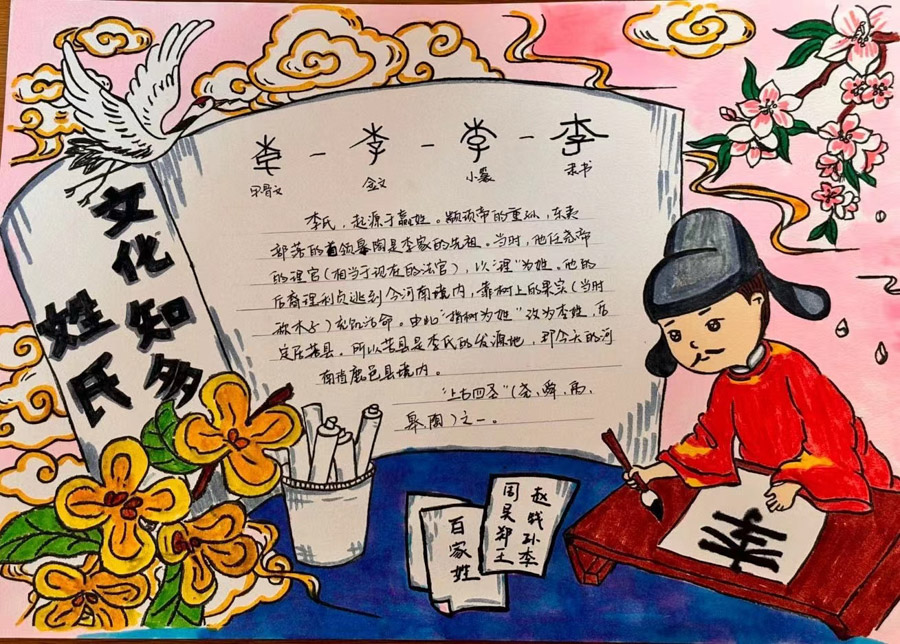 姓氏
文化知多
李 — 李 — 李 — 李
甲骨文 金文 小篆 隶书
李氏，起源于嬴姓。颛顼帝的重孙，东夷
部落的首领皋陶是李家的先祖。当时，他任尧帝
的理官（相当于现在的法官），以“理”为姓。他的
后裔理利贞逃到今河南境内，靠树上的果实（当时
称木子）充饥活命。由此“指树为姓”改为李姓，后
定居苦县。所以苦县是李氏的发源地，即今天的河
南省鹿邑县境内。
“上古四圣”（尧、舜、禹、
皋陶）之一。
百家姓
赵钱孙李
周吴郑王
李